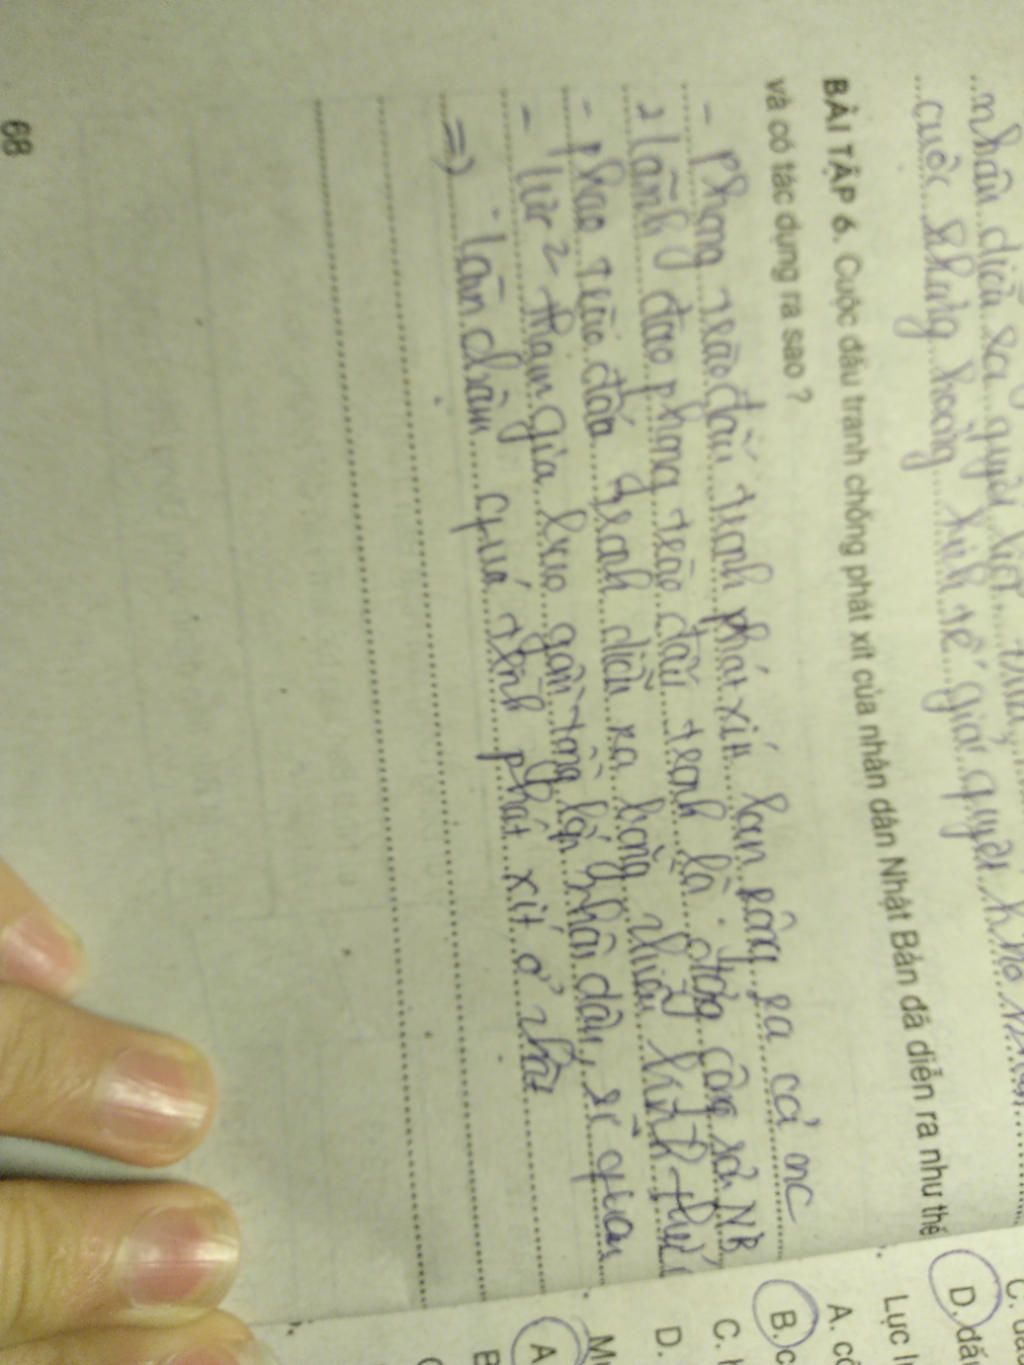 nhân diễn ra quyết liệt
cuộc khủng hoảng kinh tế giải quyết khó
BÀI TẬP 6. Cuộc đấu tranh chống phát xít của nhân dân Nhật Bản đã diễn ra như thế
và có tác dụng ra sao ?
- phong trào đấu tranh phát xít lan rộng ra cả nc
lãnh đạo phong trào đấu tranh là đảng cộng sản NB
- phao trào đấu tranh diễn ra bằng nhiều hình thức
- lực 2 tham gia bao gồm tầng lớp nhân dân, sĩ quan
=> làm chậm quá trình phát xít ở nhật
68
C.
D. đấ
Lục l
A. cô
B. c
C.
D.
A
B